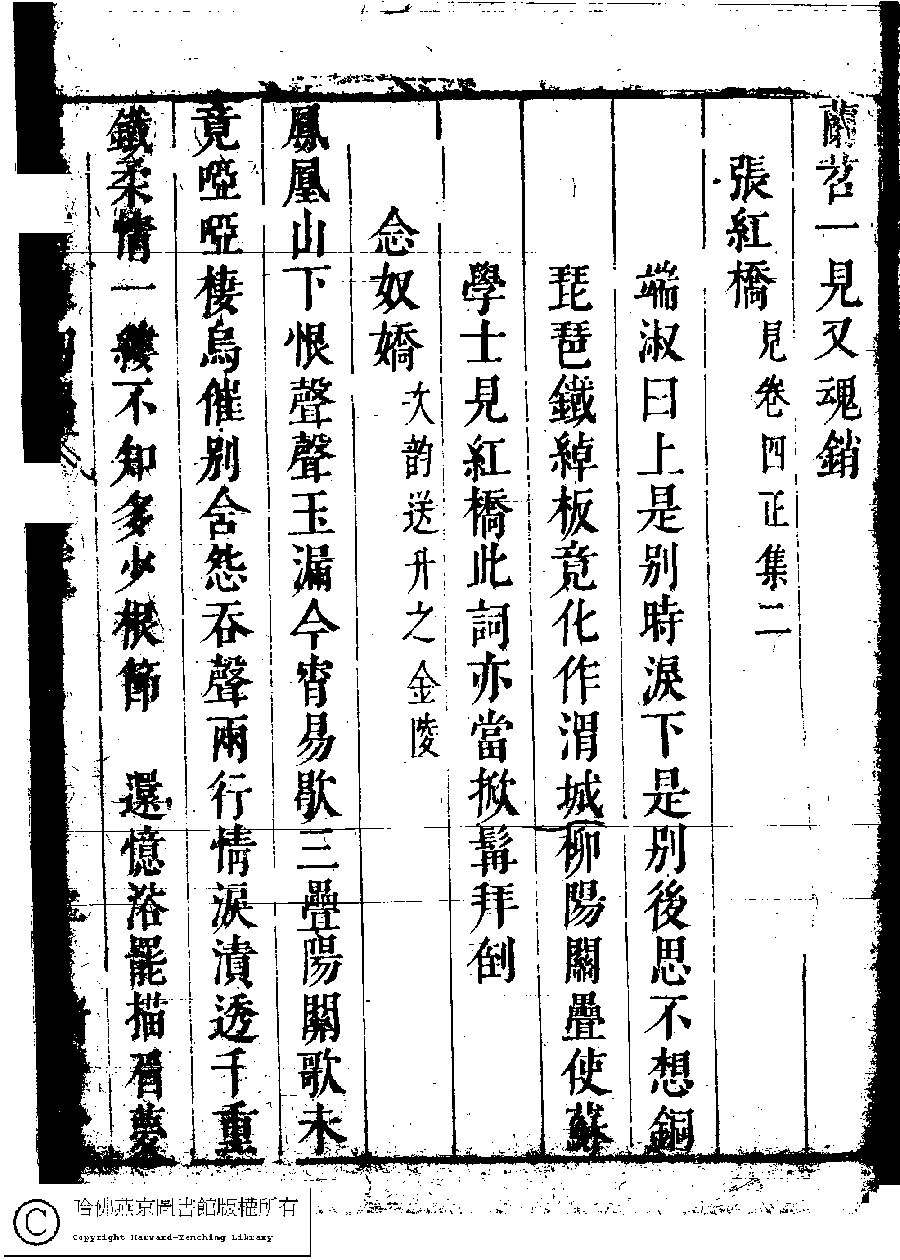 蘭苕一見又魂銷
張紅橋 見卷四正集二
端淑曰上是别時淚下是别後思不想銅
琵琶鐵綽板竟化作渭城柳陽關疊使蘇
學士見紅橋此詞亦當掀髯拜倒
念奴嬌 次韵送升之金陵
鳳凰山下恨聲聲玉漏今宵易歇三疊陽關歌未
竟啞啞棲烏催别含怨吞聲兩行情淚漬透千重
鐵柔情一縷不知多少根節 還憶浴罷描眉夢
哈佛燕京圖書館版權所有
Copyright Harvard-Yenching Library